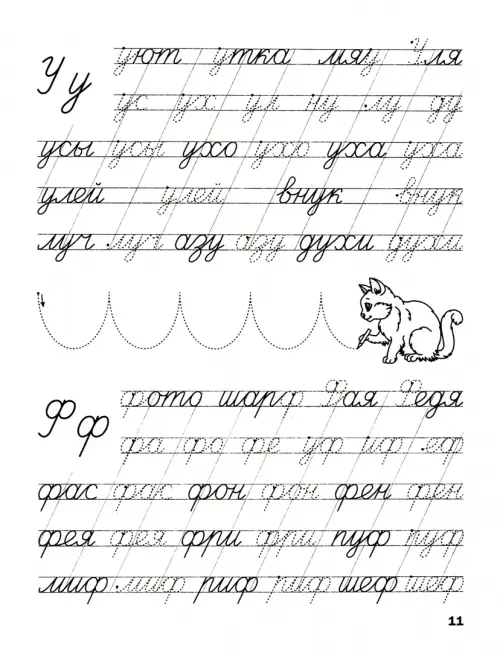 У у
уют утка мяу Уля
ус ух ул ну лу ду
усы усы ухо ухо уха уха
улей улей внук внук
луч луч азу азу духи духи
Ф ф
фото шарф Фая Федя
фа фо фе уф иф еф
фас фас фон фон фен фен
фея фея фри фри пуф пуф
миф миф риф риф шеф шеф
11